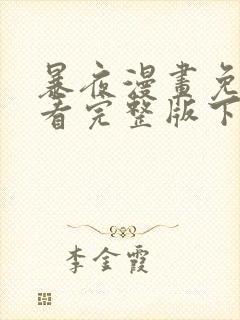 暴夜漫畫免
看完整版下
李金霞